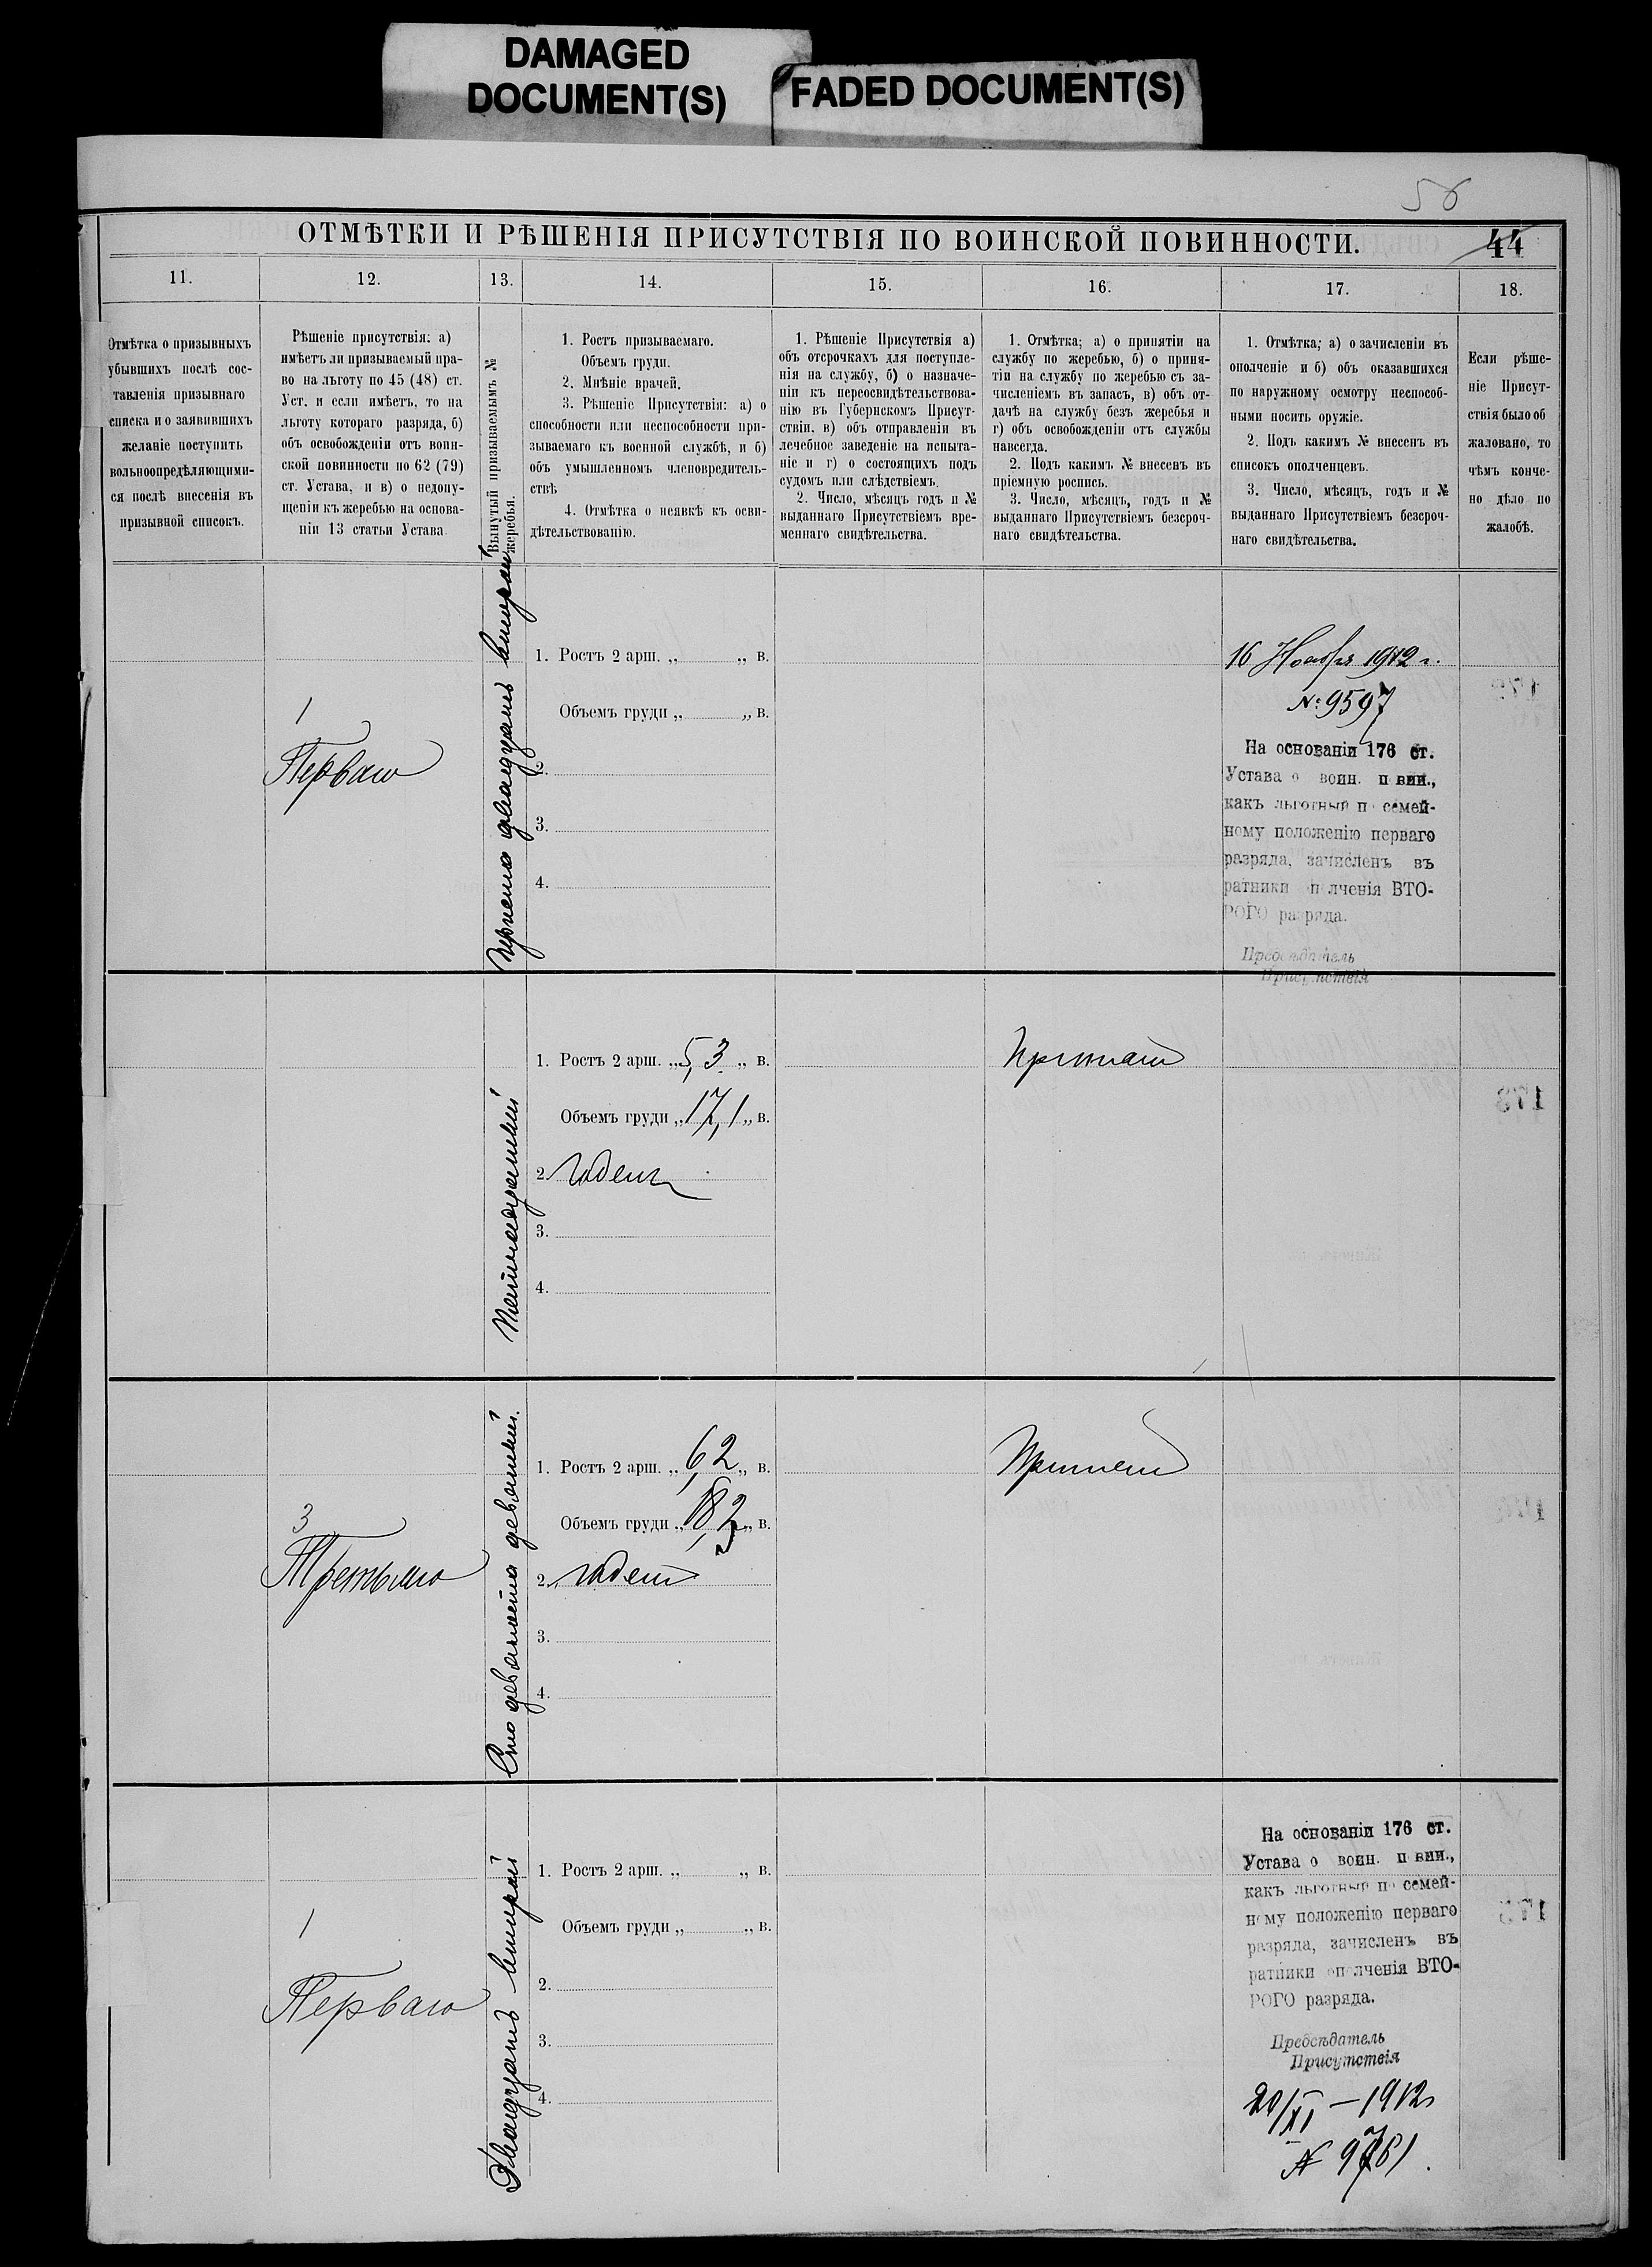 DAMAGED
DOCUMENT(S)
FADED DOCUMENT(S)
56
ОТМѢТКИ И РѢШЕНІЯ ПРИСУТСТВІЯ ПО ВОИНСКОЙ ПОВИННОСТИ.
44
11.
12.
13.
14.
15.
16.
17.
18.
Отмѣтка о призывныхъ
убывшихъ послѣ сос-
тавленія призывнаго
списка и о заявившихъ
желаніе поступить
вольноопредѣляющими-
ся послѣ внесенія въ
призывной списокъ.
Рѣшеніе присутствія: а)
имѣетъ ли призываемый пра-
во на льготу по 45 (48) ст.
Уст. и если имѣетъ, то на
льготу котораго разряда, б)
объ освобожденіи отъ воин-
ской повинности по 62 (79)
ст. Устава, и в) о недопу-
щеніи къ жеребью на основа-
ніи 13 статьи Устава
Вынутый призываемымъ №
жеребья.
1. Ростъ призываемаго.
Объемъ груди.
2. Мнѣніе врачей.
3. Рѣшеніе Присутствія: а) о
способности или неспособности при-
зываемаго къ военной службѣ, и б)
объ умышленномъ членовредитель-
ствѣ
4. Отмѣтка о неявкѣ къ осви-
дѣтельствованію.
1. Рѣшеніе Присутствія а)
объ отсрочкахъ для поступле-
нія на службу, б) о назначе-
ніи къ переосвидѣтельствова-
нію въ Губернскомъ Присут-
ствіи, в) объ отправленіи въ
лечебное заведеніе на испыта-
ніе и г) о состоящихъ подъ
судомъ или слѣдствіемъ.
2. Число, мѣсяцъ годъ и №
выданнаго Присутствіемъ вре-
меннаго свидѣтельства.
1. Отмѣтка; а) о принятіи на
службу по жеребью, б) о приня-
тіи на службу по жеребью съ за-
численіемъ въ запасъ, в) объ от-
дачѣ на службу безъ жеребья и
г) объ освобожденіи отъ службы
навсегда.
2. Подъ какимъ № внесенъ въ
пріемную роспись.
3. Число, мѣсяцъ, годъ и №
выданнаго Присутствіемъ безсроч-
наго свидѣтельства.
1. Отмѣтка; а) о зачисленіи въ
ополченіе и б) объ оказавшихся
по наружному осмотру неспособ-
ными носить оружіе.
2. Подъ какимъ № внесенъ въ
списокъ ополченцевъ.
3. Число, мѣсяцъ, годъ и №
выданнаго Присутствіемъ безсроч-
наго свидѣтельства.
Если рѣше-
ніе Присут-
ствія было об
жаловано, то
чѣмъ конче-
но дѣло по
жалобѣ.
1
Перваго
двадцать второй
1. Ростъ 2 арш. „ „ в.
Объемъ груди „ „ в.
2.
3.
4.
16 Ноября 1912 г.
№ 9597
На основаніи 176 ст.
Устава о воин. повин.,
какъ льготный по семей-
ному положенію перваго
разряда, зачисленъ въ
ратники ополченія ВТО-
РОГО разряда.
Предсѣдатель
Присутствія
Пятнадцатый
1. Ростъ 2 арш. „5,3 „ в.
Объемъ груди „17,1 „ в.
2. годенъ
3.
4.
Принятъ
3
Третьяго
Сто девяносто девятый.
1. Ростъ 2 арш. „6,2 „ в.
Объемъ груди „18,2 „ в.
2. годенъ
3.
4.
Принятъ
1
Перваго
Двадцать второй
1. Ростъ 2 арш. „ „ в.
Объемъ груди „ „ в.
2.
3.
4.
На основаніи 176 ст.
Устава о воин. повин.,
какъ льготный по семей-
ному положенію перваго
разряда, зачисленъ въ
ратники ополченія ВТО-
РОГО разряда.
Предсѣдатель
Присутствія
20/XI – 1912
№ 9761